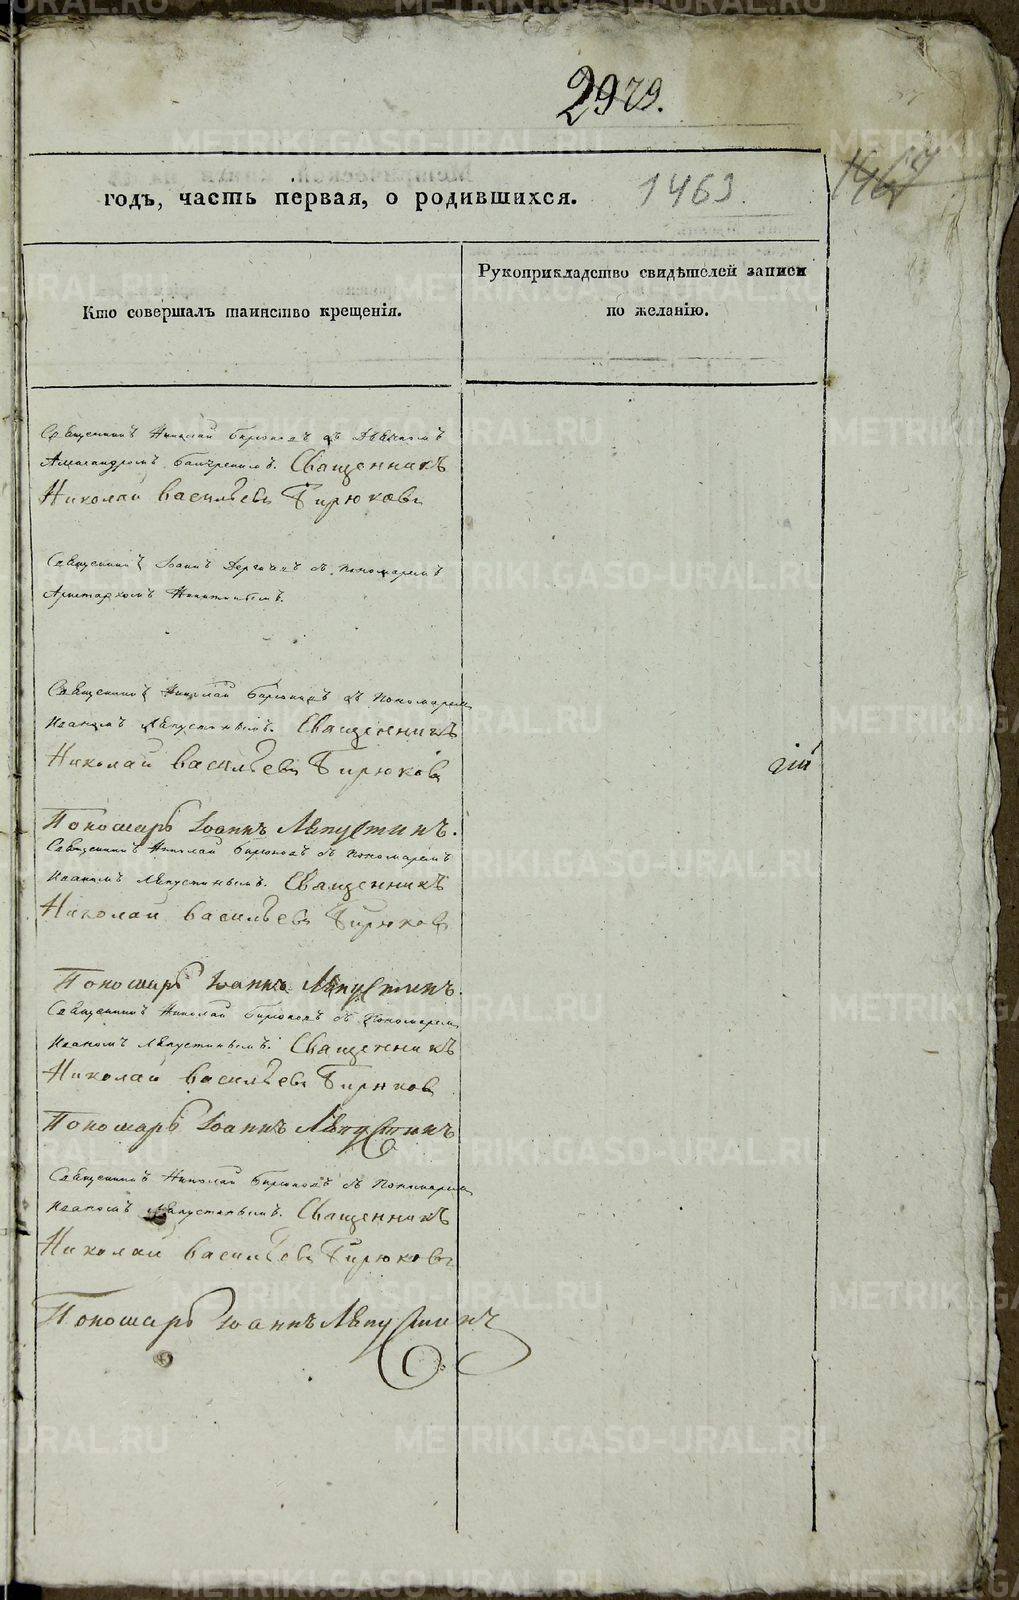 2979.
годъ, часть первая, о родившихся.
1463.
1464
Кто совершалъ таинство крещенія.
Рукоприкладство свидѣтелей записи
по желанію.
Священникъ Николай Бирюковъ съ Дьякономъ
Александромъ Священникъ
Николай Васильевъ Бирюковъ
Священникъ Іоаннъ съ пономаремъ
Аристархомъ
Священникъ Николай Бирюковъ съ Пономаремъ
Иваномъ Ляпустинымъ. Священникъ
Николай Васильевъ Бирюковъ
гій
Пономарь Іоаннъ Ляпустинъ.
Священникъ Николай Бирюковъ съ Пономаремъ
Иваномъ Ляпустинымъ. Священникъ
Николай Васильевъ Бирюковъ
Пономарь Іоаннъ Ляпустинъ.
Священникъ Николай Бирюковъ съ Пономаремъ
Иваномъ Ляпустинымъ. Священникъ
Николай Васильевъ Бирюковъ
Пономарь Іоаннъ Ляпустинъ
Священникъ Николай Бирюковъ съ Пономаремъ
Иваномъ Ляпустинымъ. Священникъ
Николай Васильевъ Бирюковъ
Пономарь Іоаннъ Ляпустинъ
METRIKI.GASO-URAL.RU